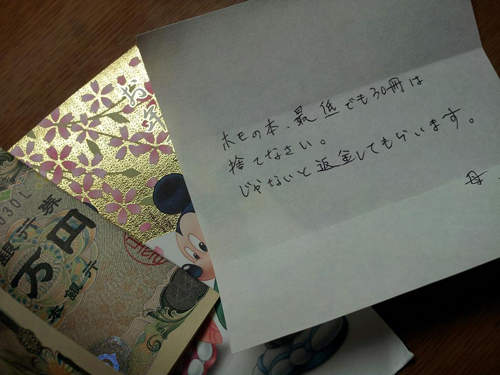 ホモの本、最低でも30冊は
捨てなさい。
じゃないと返金してもらいます。
母
お年
銀行券
万円
日本銀行